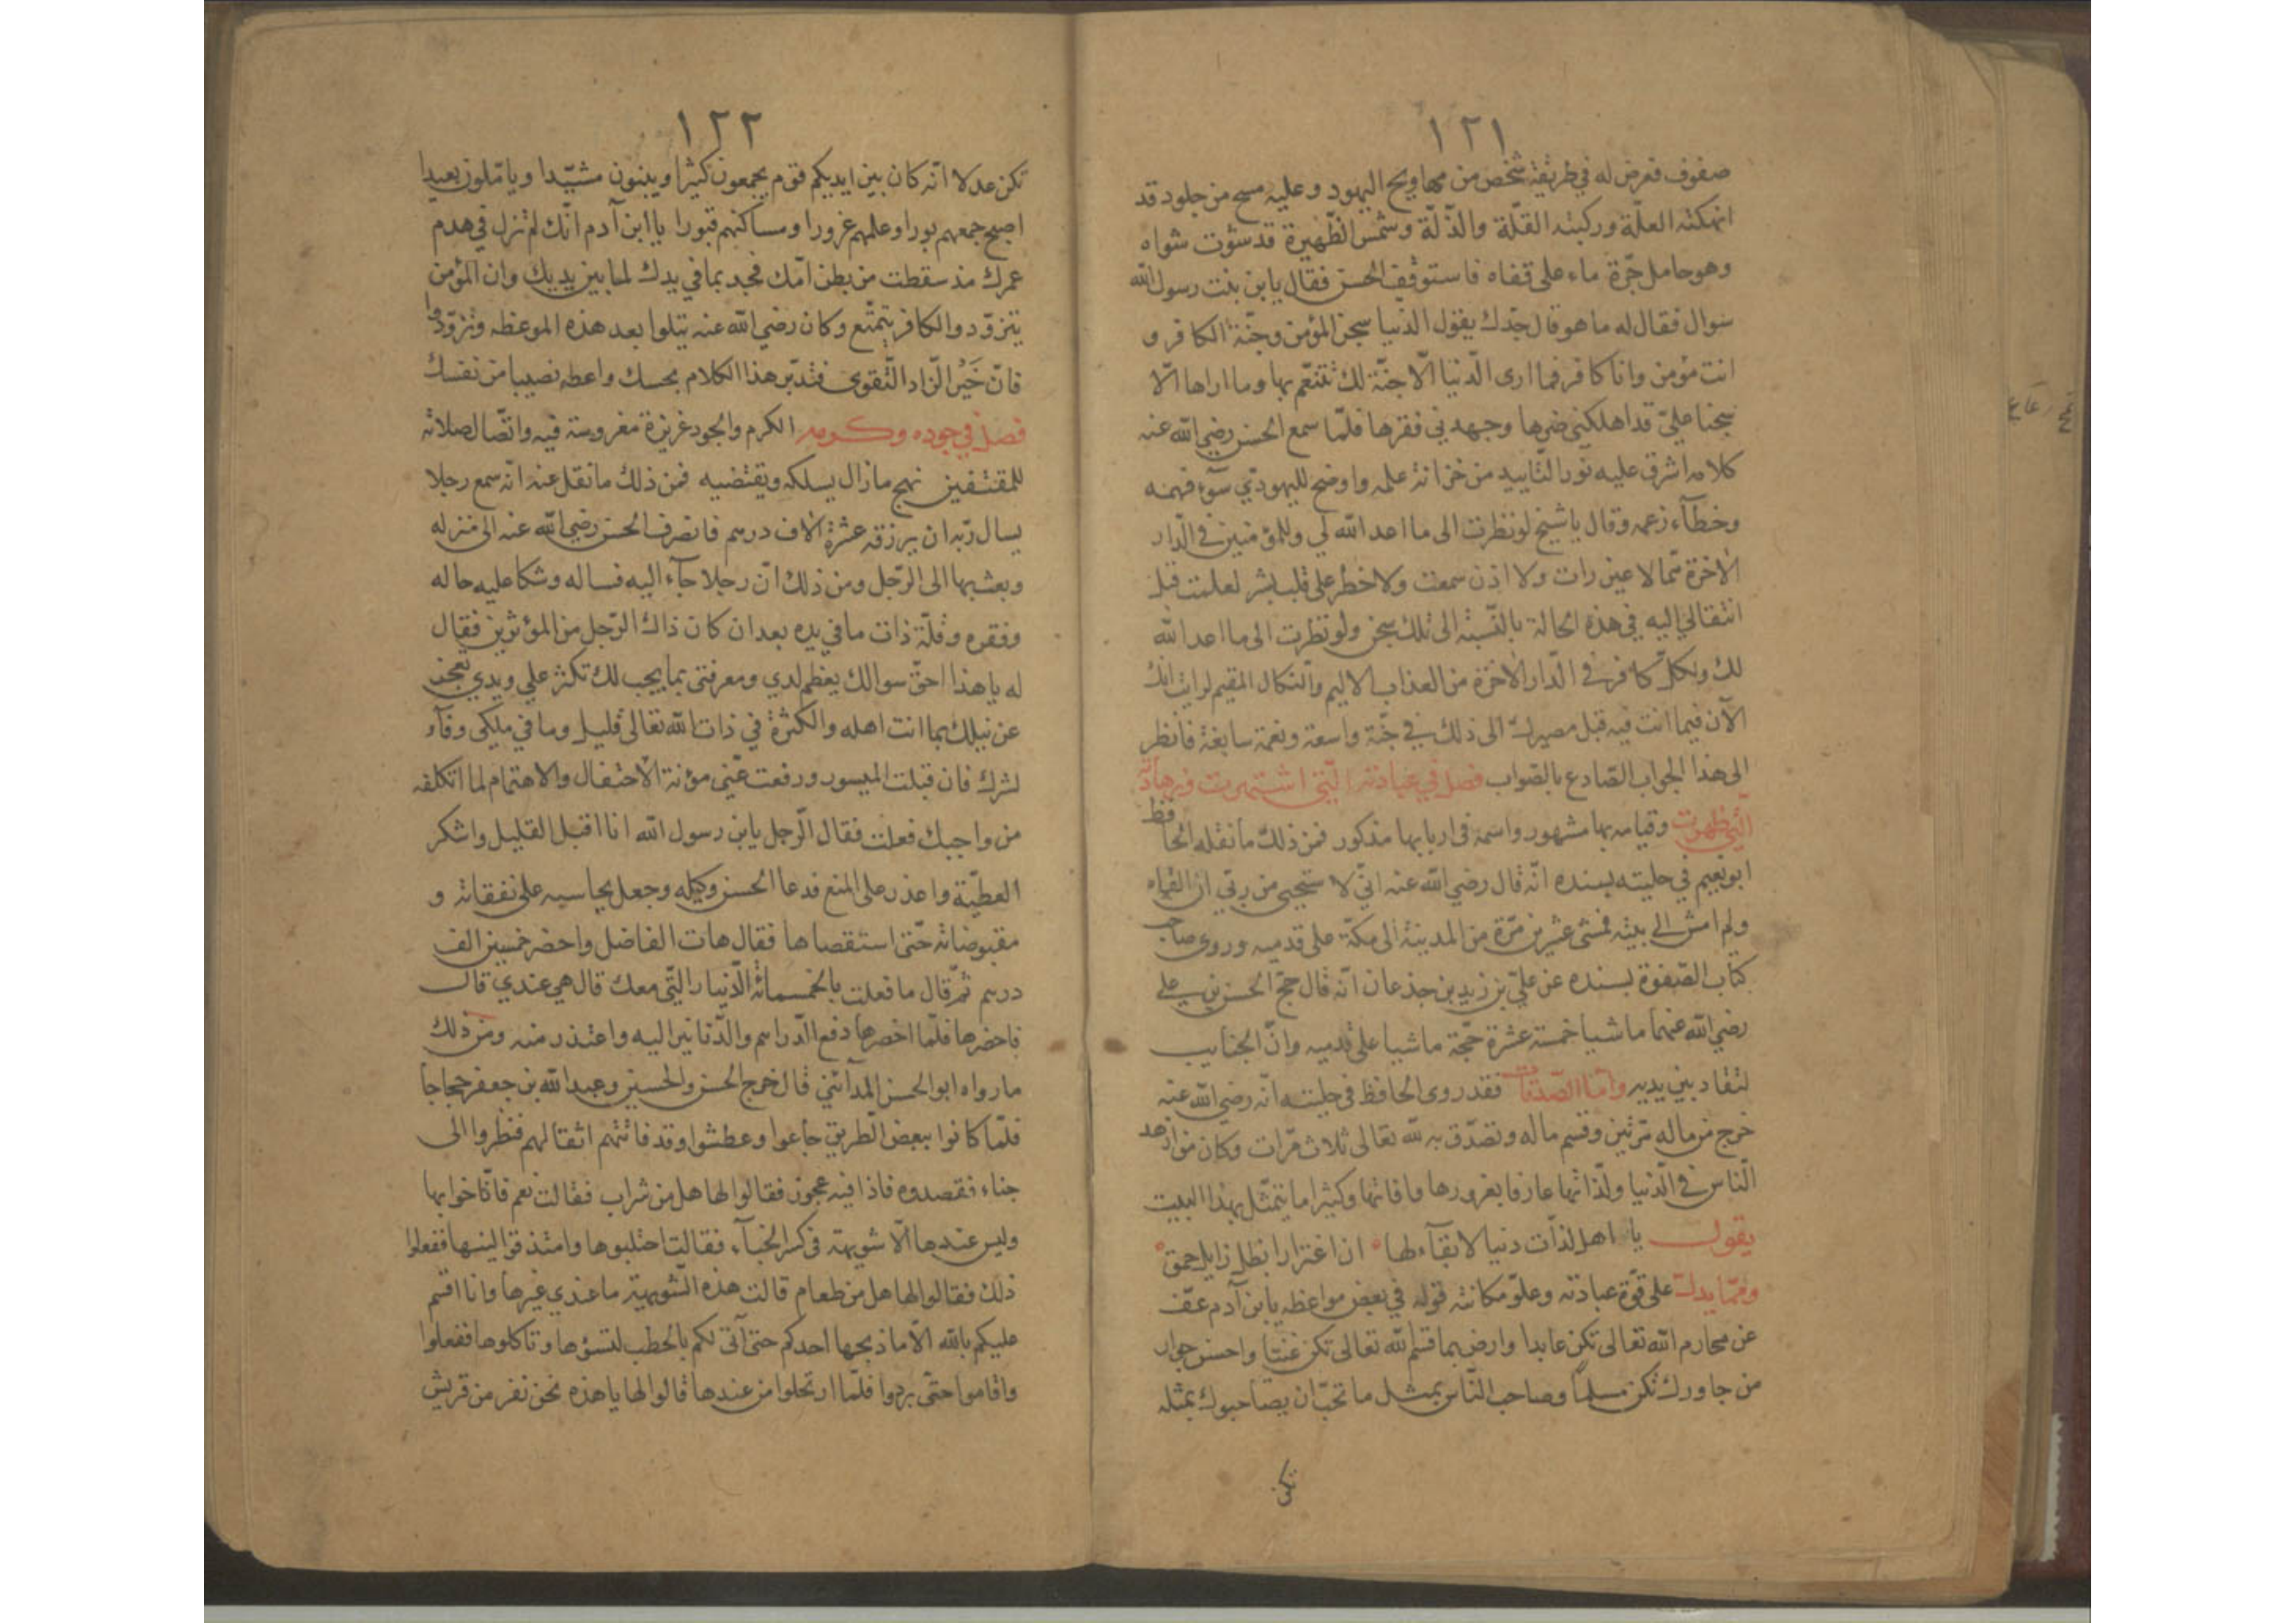 ١٢١
صفوف فعرض له في طريقه شخص من محاويج اليهود وعليه مسح من جلود قد
انهكته العلّة وركبته القلّة والذّلّة وشمس الظّهيرة قد شوت شواه
وهو حامل جرّة ماء على قفاه فاستوقف الحسن فقال يابن بنت رسول الله
سوال فقال له ما هو قال جدّك يقول الدّنيا سجن المؤمن وجنّة الكافر و
انت مؤمن وانا كافر فما ارى الدّنيا الّا جنّة لك تتنعّم بها وما اراها الّا
سجنا عليّ قد اهلكني ضرها وجهدني فقرها فلمّا سمع الحسن رضي الله عنه
كلامه اشرق عليه نور التّاييد من خزانة علمه واوضح لليهوديّ سوء فهمه
وخطآء زعمه وقال يا شيخ لو نظرت الى ما اعد الله لي وللمؤمنين في الدّار
الاخرة ممّا لا عين رات ولا اذن سمعت ولا خطر على قلب بشر لعلمت قبل
انتقالي اليه في هذه الحالة بالنّسبة الى تلك سجن ولو نظرت الى ما اعد الله
لك ولكلّ كافر في الدّار الاخرة من العذاب الاليم والنّكال المقيم لرايت انك
الآن فيما انت فيه قبل مصيرك الى ذلك في جنّة واسعة ونعمة سابغة فانظر
الى هذا الجواب الصّادع بالصّواب فصل في عبادته الّتي اشتهرت وزهادته
الّتي ظهرت وقيامه بها مشهور واسمه في اربابها مذكور فمن ذلك ما نقله الحافظ
ابو نعيم في حليته بسنده انّه قال رضي الله عنه انّي لاستحيى من ربّي ان القاه
ولم امش الى بيته فمشى عشرين مرّة من المدينة الى مكّة على قدميه وروى صاحب
كتاب الصّفوة بسنده عن عليّ بن زيد بن جذعان انّه قال حجّ الحسن بن علي
رضي الله عنهما ماشيا خمسة عشرة حجّة ماشيا على قدميه وانّ الجنايب
لتقاد بين يديه وامّا الصّدقات فقد روى الحافظ في حليته انّه رضي الله عنه
خرج من ماله مرّتين وقسم ماله وتصدّق به لله تعالى ثلاث مرّات وكان من ازهد
النّاس في الدّنيا ولذّاتها عارفا بغرورها وافاتها وكثيرا ما يتمثّل بهذا البيت
يقول يا اهل لذّات دنيا لا بقآء لها ان اغترارا بظل زايل حمق
وممّا يدلّ على قوّة عبادته وعلوّ مكانته قوله في بعض مواعظه يابن آدم عفّ
عن محارم الله تعالى تكن عابدا وارض بما قسم الله تعالى تكن غنيّا واحسن جوار
من جاورك تكن مسلما وصاحب النّاس بمثل ما تحبّ ان يصاحبوك بمثله
تكن
١٢٢
تكن عدلا انّه كان بين ايديكم قوم يجمعون كثيرا ويبنون مشيّدا وياملون بعيدا
اصبح جمعهم بورا وعلمهم غرورا ومساكنهم قبورا يا ابن آدم انّك لم تزل في هدم
عمرك مذ سقطت من بطن امّك فجد بما في يدك لما بين يديك وان المؤمن
يتزوّد والكافر يتمتّع وكان رضي الله عنه يتلوا بعد هذه الموعظه وتزوّدوا
فانّ خَيْر الزّاد التّقوى فتدبّر هذا الكلام بحسك واعطه نصيبا من نفسك
فصل في جوده وكرمه الكرم والجود غريزة مغروسة فيه واتّصال صلاته
للمقتفين نهج ما زال يسلكه ويقتضيه فمن ذلك ما نقل عنه انّه سمع رجلا
يسال ربّه ان يرزقه عشرة الاف درهم فانصرف الحسن رضي الله عنه الى منزله
وبعث بها الى الرّجل ومن ذلك انّ رجلا جآء اليه فساله وشكا عليه حاله
وفقره وقلّة ذات ما في يده بعد ان كان ذاك الرّجل من المؤثرين فقال
له يا هذا احقّ سوالك يعظم لدي ومعرفتي بما يجب لك تكثر علي ويدي تعجز
عن نيلك بما انت اهله والكثرة في ذات الله تعالى قليل وما في ملكي وفآء
لشرك فان قبلت الميسور ورفعت عنّي مؤنة الاحتفال والاهتمام لما اتكلفه
من واجبك فعلت فقال الرّجل يابن رسول الله انا اقبل القليل واشكر
العطيّة واعذر على المنع فدعا الحسن وكيله وجعل يحاسبه على نفقاته و
مقبوضاته حتّى استقصاها فقال هات الفاضل واحضر خمسين الف
درهم ثمّ قال ما فعلت بالخمسمائة الدّينار الّتي معك قال هي عندي قال
فاحضرها فلمّا احضرها دفع الدّراهم والدّنانير اليه واعتذر منه ومن ذلك
ما رواه ابو الحسن المدآئني قال خرج الحسن والحسين وعبد الله بن جعفر حجاجا
فلمّا كانوا ببعض الطّريق جاعوا وعطشوا وقد فاتتهم اثقالهم فنظروا الى
خباء فقصدوه فاذا فيه عجوز فقالوا لها هل من شراب فقالت نعم فاناخوا بها
وليس عندها الّا شويهة في كسر الخبآء فقالت احتلبوها وامتذقوا لبنها ففعلوا
ذلك فقالوا لها هل من طعام قالت هذه الشّويهة ما عندي غيرها وانا اقسم
عليكم بالله الّا ما ذبحها احدكم حتى آتي لكم بالحطب لتشوها وتاكلوها ففعلوا
واقاموا حتّى بردوا فلمّا ارتحلوا من عندها قالوا لها يا هذه نحن نفر من قريش